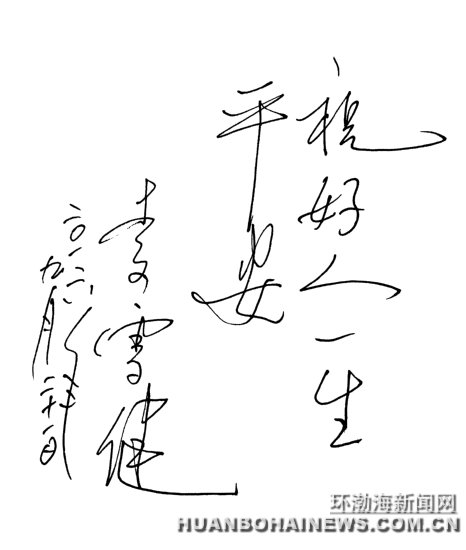 祝好人一生
平安
李雪健
二〇一六、
九月
环渤海新闻网
HUANBOHAINEWS.COM.CN